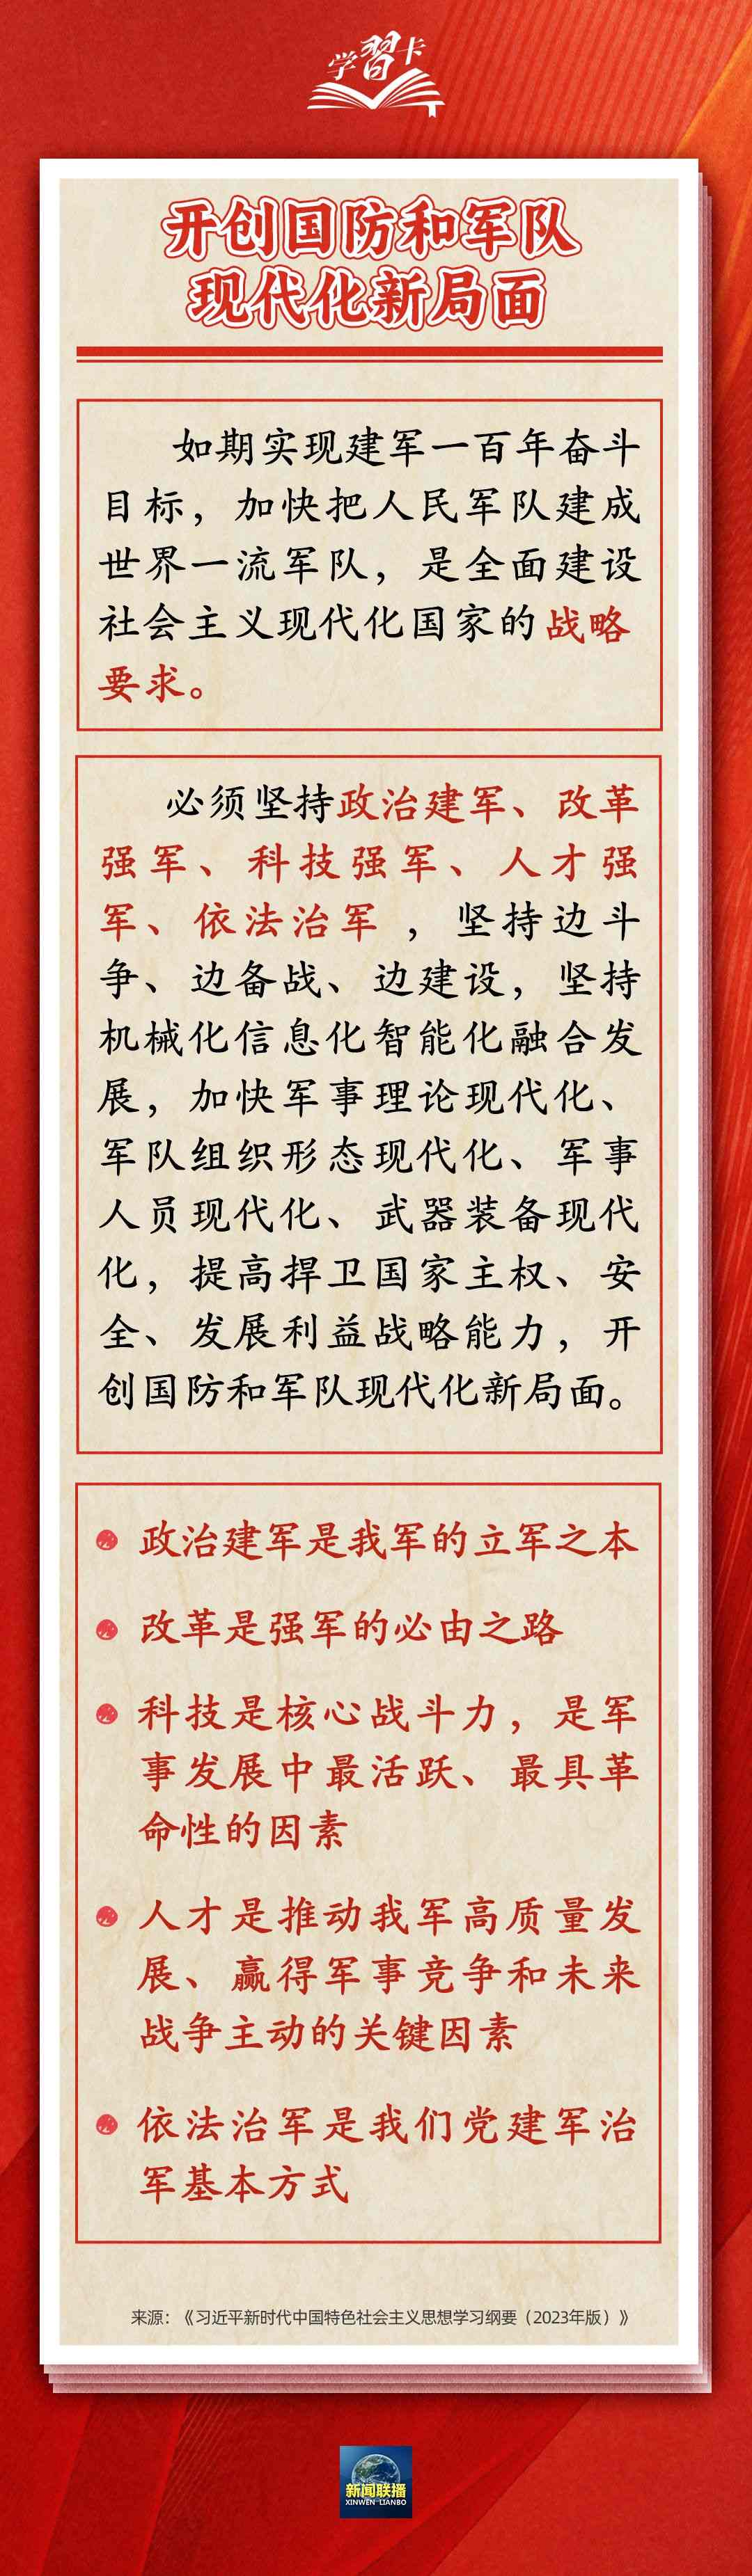 学習卡
开创国防和军队
现代化新局面
如期实现建军一百年奋斗
目标，加快把人民军队建成
世界一流军队，是全面建设
社会主义现代化国家的战略
要求。
必须坚持政治建军、改革
强军、科技强军、人才强
军、依法治军，坚持边斗
争、边备战、边建设，坚持
机械化信息化智能化融合发
展，加快军事理论现代化、
军队组织形态现代化、军事
人员现代化、武器装备现代
化，提高捍卫国家主权、安
全、发展利益战略能力，开
创国防和军队现代化新局面。
政治建军是我军的立军之本
改革是强军的必由之路
科技是核心战斗力，是军
事发展中最活跃、最具革
命性的因素
人才是推动我军高质量发
展、赢得军事竞争和未来
战争主动的关键因素
依法治军是我们党建军治
军基本方式
来源：《习近平新时代中国特色社会主义思想学习纲要（2023年版）》
新闻联播
XINWEN LIANBO